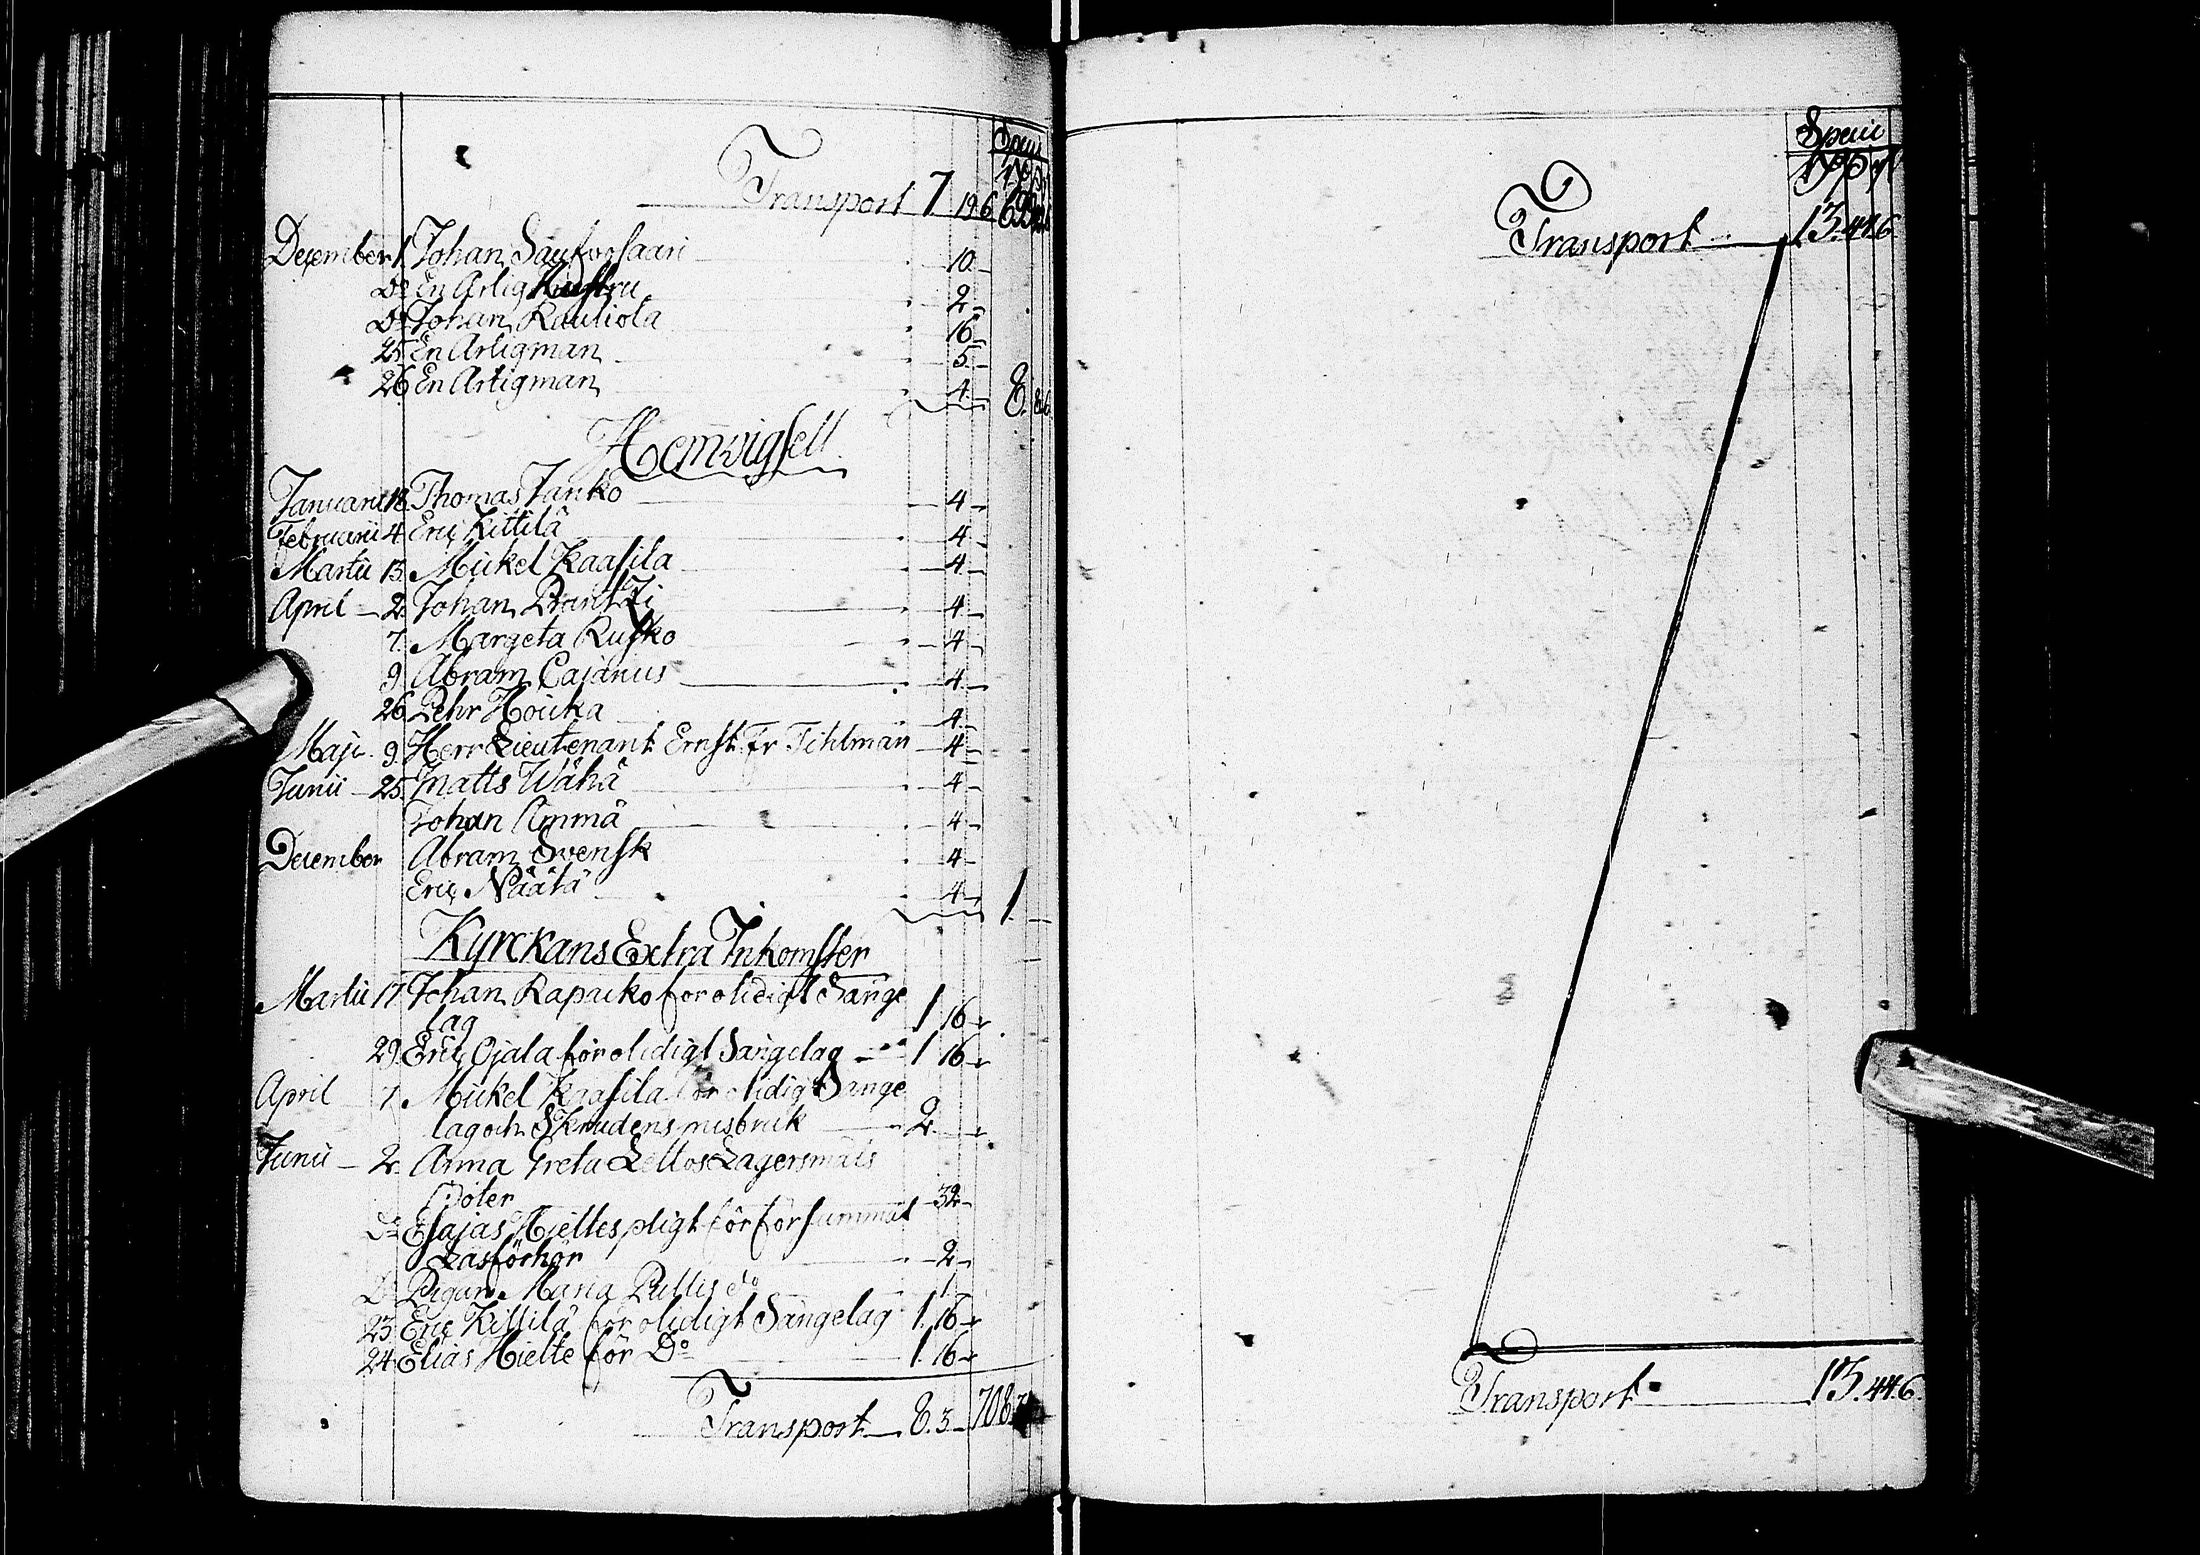 Specie
Transport 7. 19. 6
December 1. Johan 10. –
Do En Ärlig Hustru 2. –
Do Johan Rautiola 16 –
25 En Ärligman 5. –
26 En Ärligman 4. – 8. 8. 6.
Hemvigsell
Januarii 18. Thomas Janko 4 –
Februarii 4. Eric Kittilä 4. –
Martii 15. Mickel Kaasila 4. –
April – 2. Johan 4. –
7. Margeta Rusko 4. –
9. Abram Cajanus 4. –
26. Pehr Houka 4. –
Maji. 9. Herr Lieutenant Ernst Fr Tihlman 4 –
Junii – 25. Matts Wähä 4 –
Johan Ämmä 4. –
December Abram Svensk 4 –
Eric Näätä 4. – 1. –
Kyrckans Extra Inkomster
Martii 17. Johan Rapacko för olidigt Sänge
lag 1 16 –
29. Eric Ojala för olidigt Sängelag 1 16 –
April 7. Mickel Kaasila för olidigt Sänge
lag och Skrudens misbruk 2. –
Junii – 2. Anna Greta Lägersmåls
böter 32 –
Do Esajas Hieltes pligt för försummat
Läsförhör 2 –
Do Pigan Maria do 1. –
23 Eric Kittilä för olidigt Sängelag 1. 16 –
24. Elias Hielte för Do 1. 16 –
Transport 8. 3. – 708.
Specie
Transport 13. 44. 6
Transport 13. 44. 6.